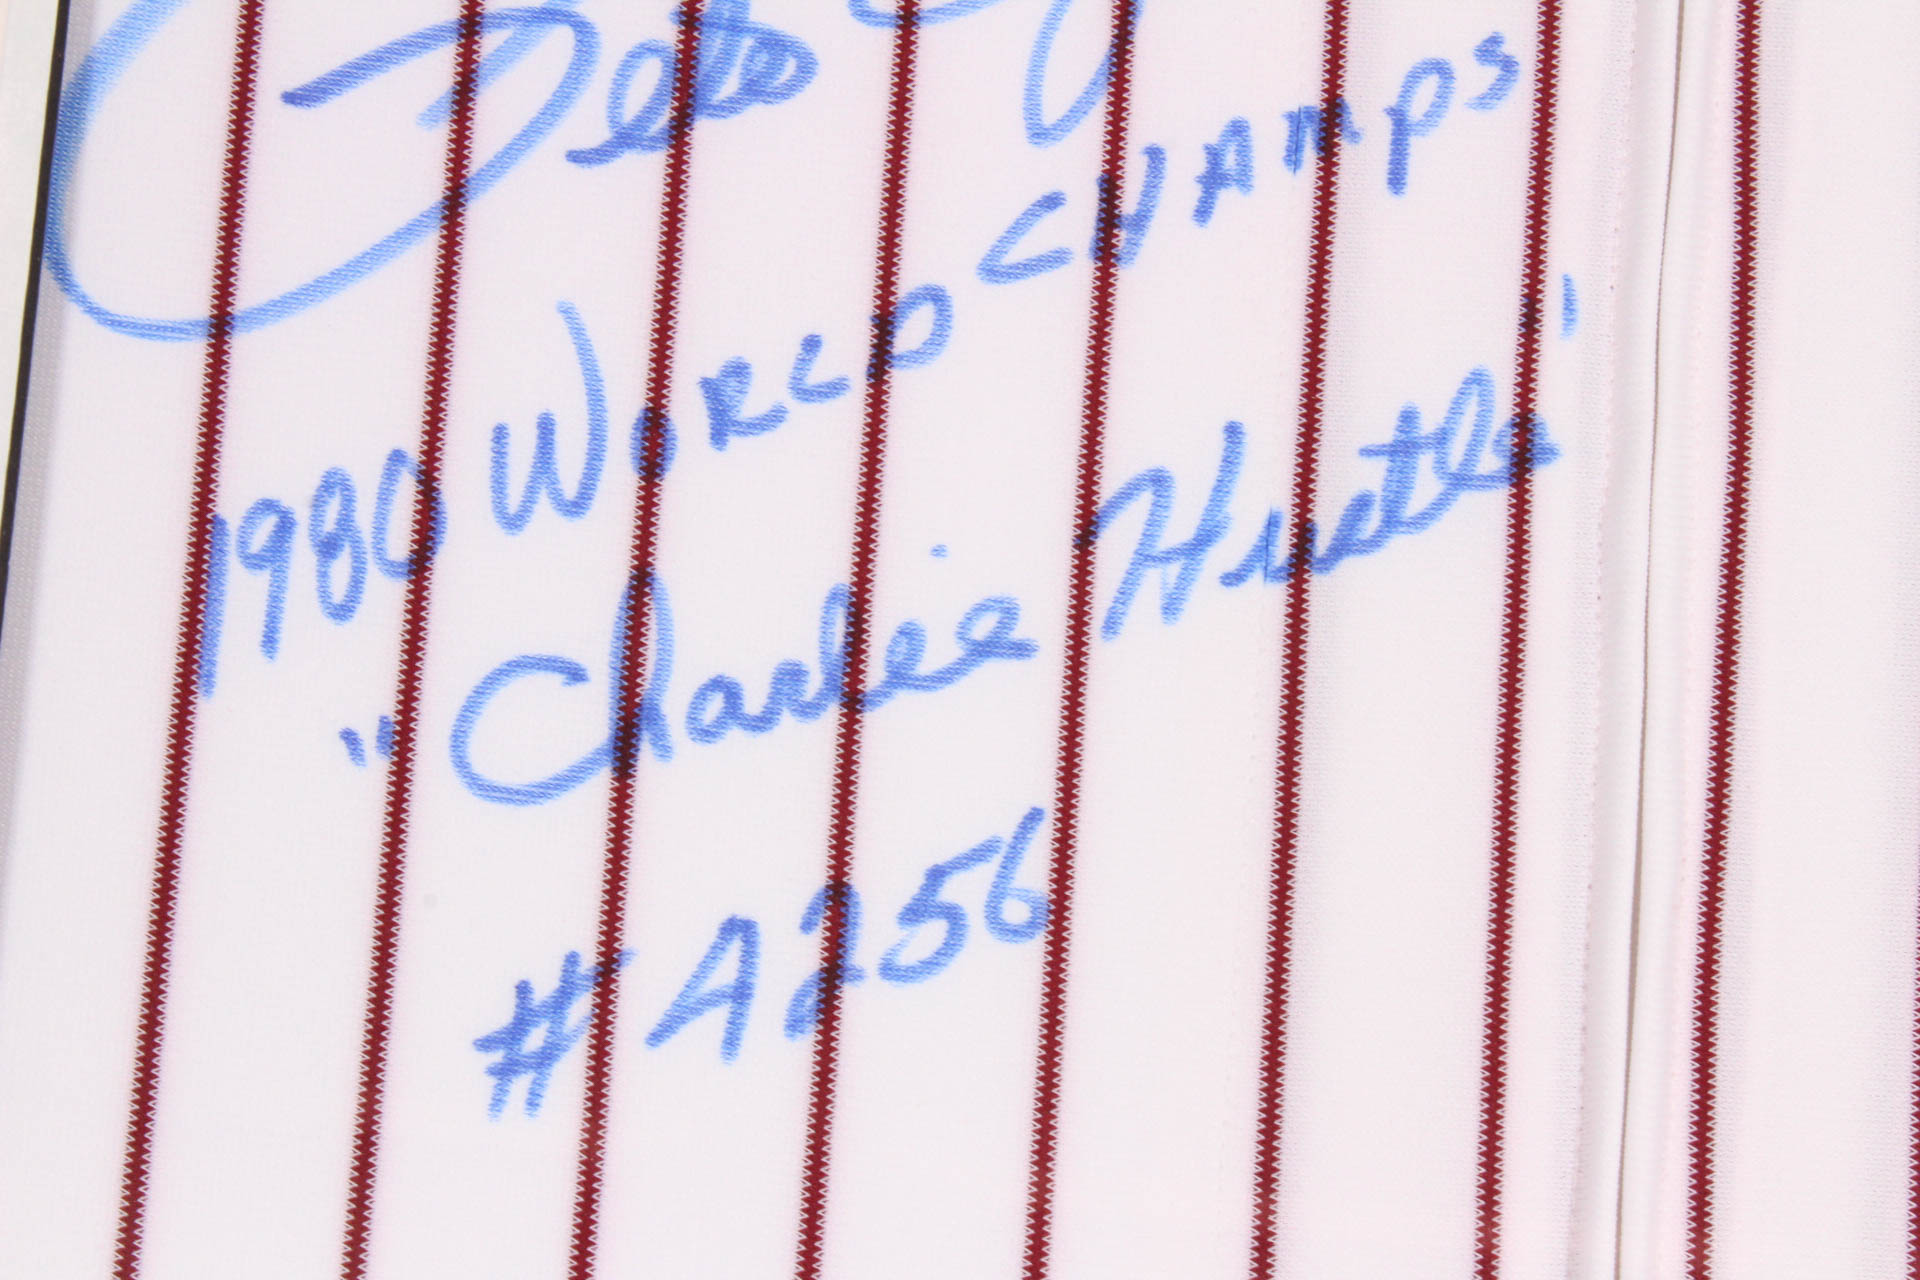 Pete
1980 WORLD CHAMPS
"Charlie Hustle"
#4256